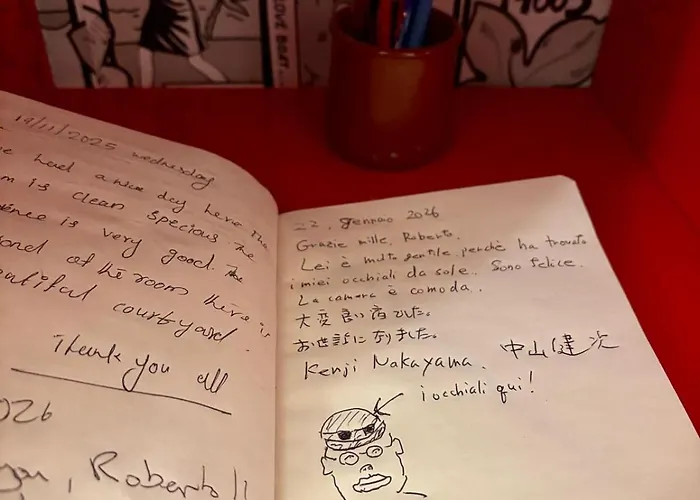 LOVE BOAT
19/11/2025 wednesday
had a nice day here the
m is clean specious. The
ence is very good. The
end of the room there is
autiful courtyard.
Thank you all
026
, Roberto
22, gennaio 2026
Grazie mille, Roberto.
Lei è molto gentile perchè ha trovato
i miei occhiali da sole. Sono felice.
La camera è comoda.
大変良い宿でした。
お世話になりました。
Kenji Nakayama. 中山健次
i occhiali qui!